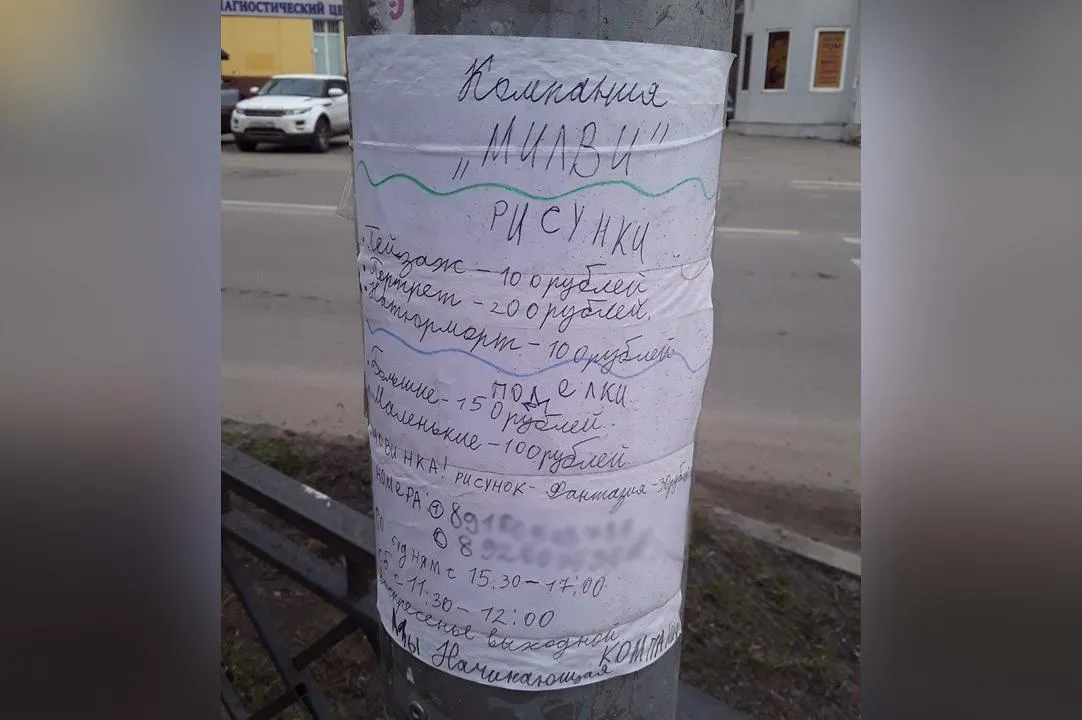 АГНОСТИЧЕСКИЙ ЦЕ
Компания
„МИЛВИ"
РИСУНКИ
• Пейзаж - 100 рублей
• Портрет - 200 рублей.
• Натюрморт - 100 рублей
ПОДЕЛКИ
• Большие - 150 рублей.
• Маленькие - 100 рублей
НОВИНКА! РИСУНОК - Фантазия - 30 рубл
НОМЕРА: ① 89
② 8
ПО БУДНЯМ с 15:30 - 17:00
СБ с 11:30 - 12:00
Воскресенье выходной
Мы Начинающая КОМПАНИЯ